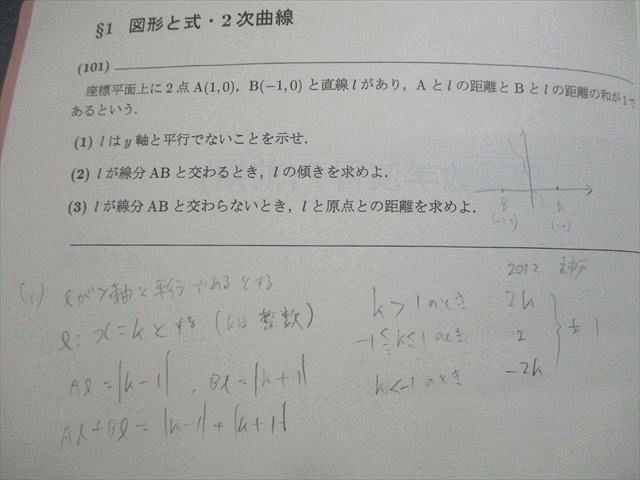 §1 図形と式・2次曲線
(101)
座標平面上に2点A(1,0), B(−1,0)と直線lがあり, Aとlの距離とBとlの距離の和が1で
あるという.
(1) lはy軸と平行でないことを示せ.
(2) lが線分ABと交わるとき, lの傾きを求めよ.
(3) lが線分ABと交わらないとき, lと原点との距離を求めよ.
B
(-1,0)
A
(1,0)
2012 神戸
(1) lがy軸と平行であるとする
l: x=kとする (kは整数)
Al=|k-1|, Bl=|k+1|
Al+Bl=|k-1|+|k+1|
k>1のとき 2k
-1≦k≦1のとき 2
k<-1のとき -2k
≠1